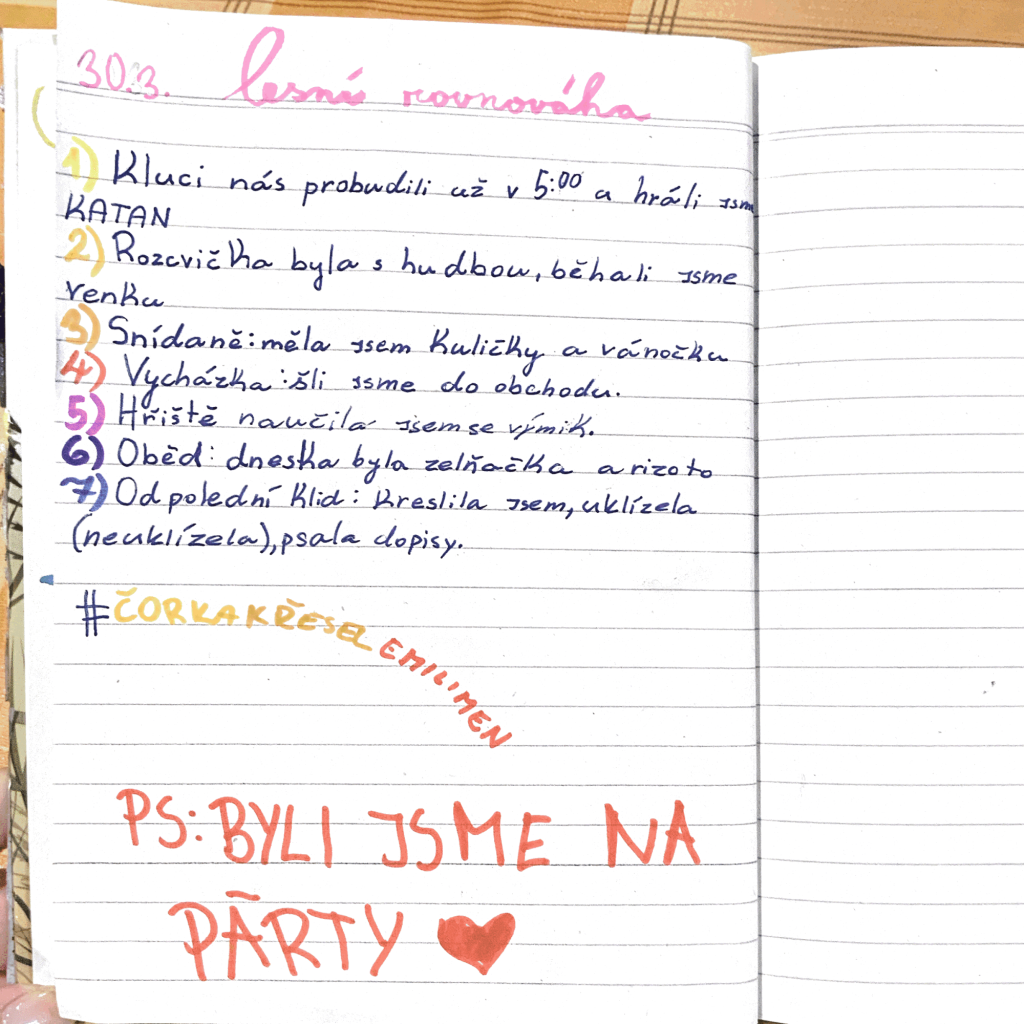 30.3. lesní rovnováha
1) Kluci nás probudili už v 5:00 a hráli jsme
KATAN
2) Rozcvička byla s hudbou, běhali jsme
venku
3) Snídaně: měla jsem kuličky a vánočku
4) Vycházka: šli jsme do obchodu.
5) Hřiště naučila jsem se výmik.
6) Oběd: dneska byla zelňačka a rizoto
7) Odpolední klid: kreslila jsem, uklízela
(neuklízela), psala dopisy.
#ČORKAKŘESEL EMILIMEN
PS: BYLI JSME NA
PÁRTY